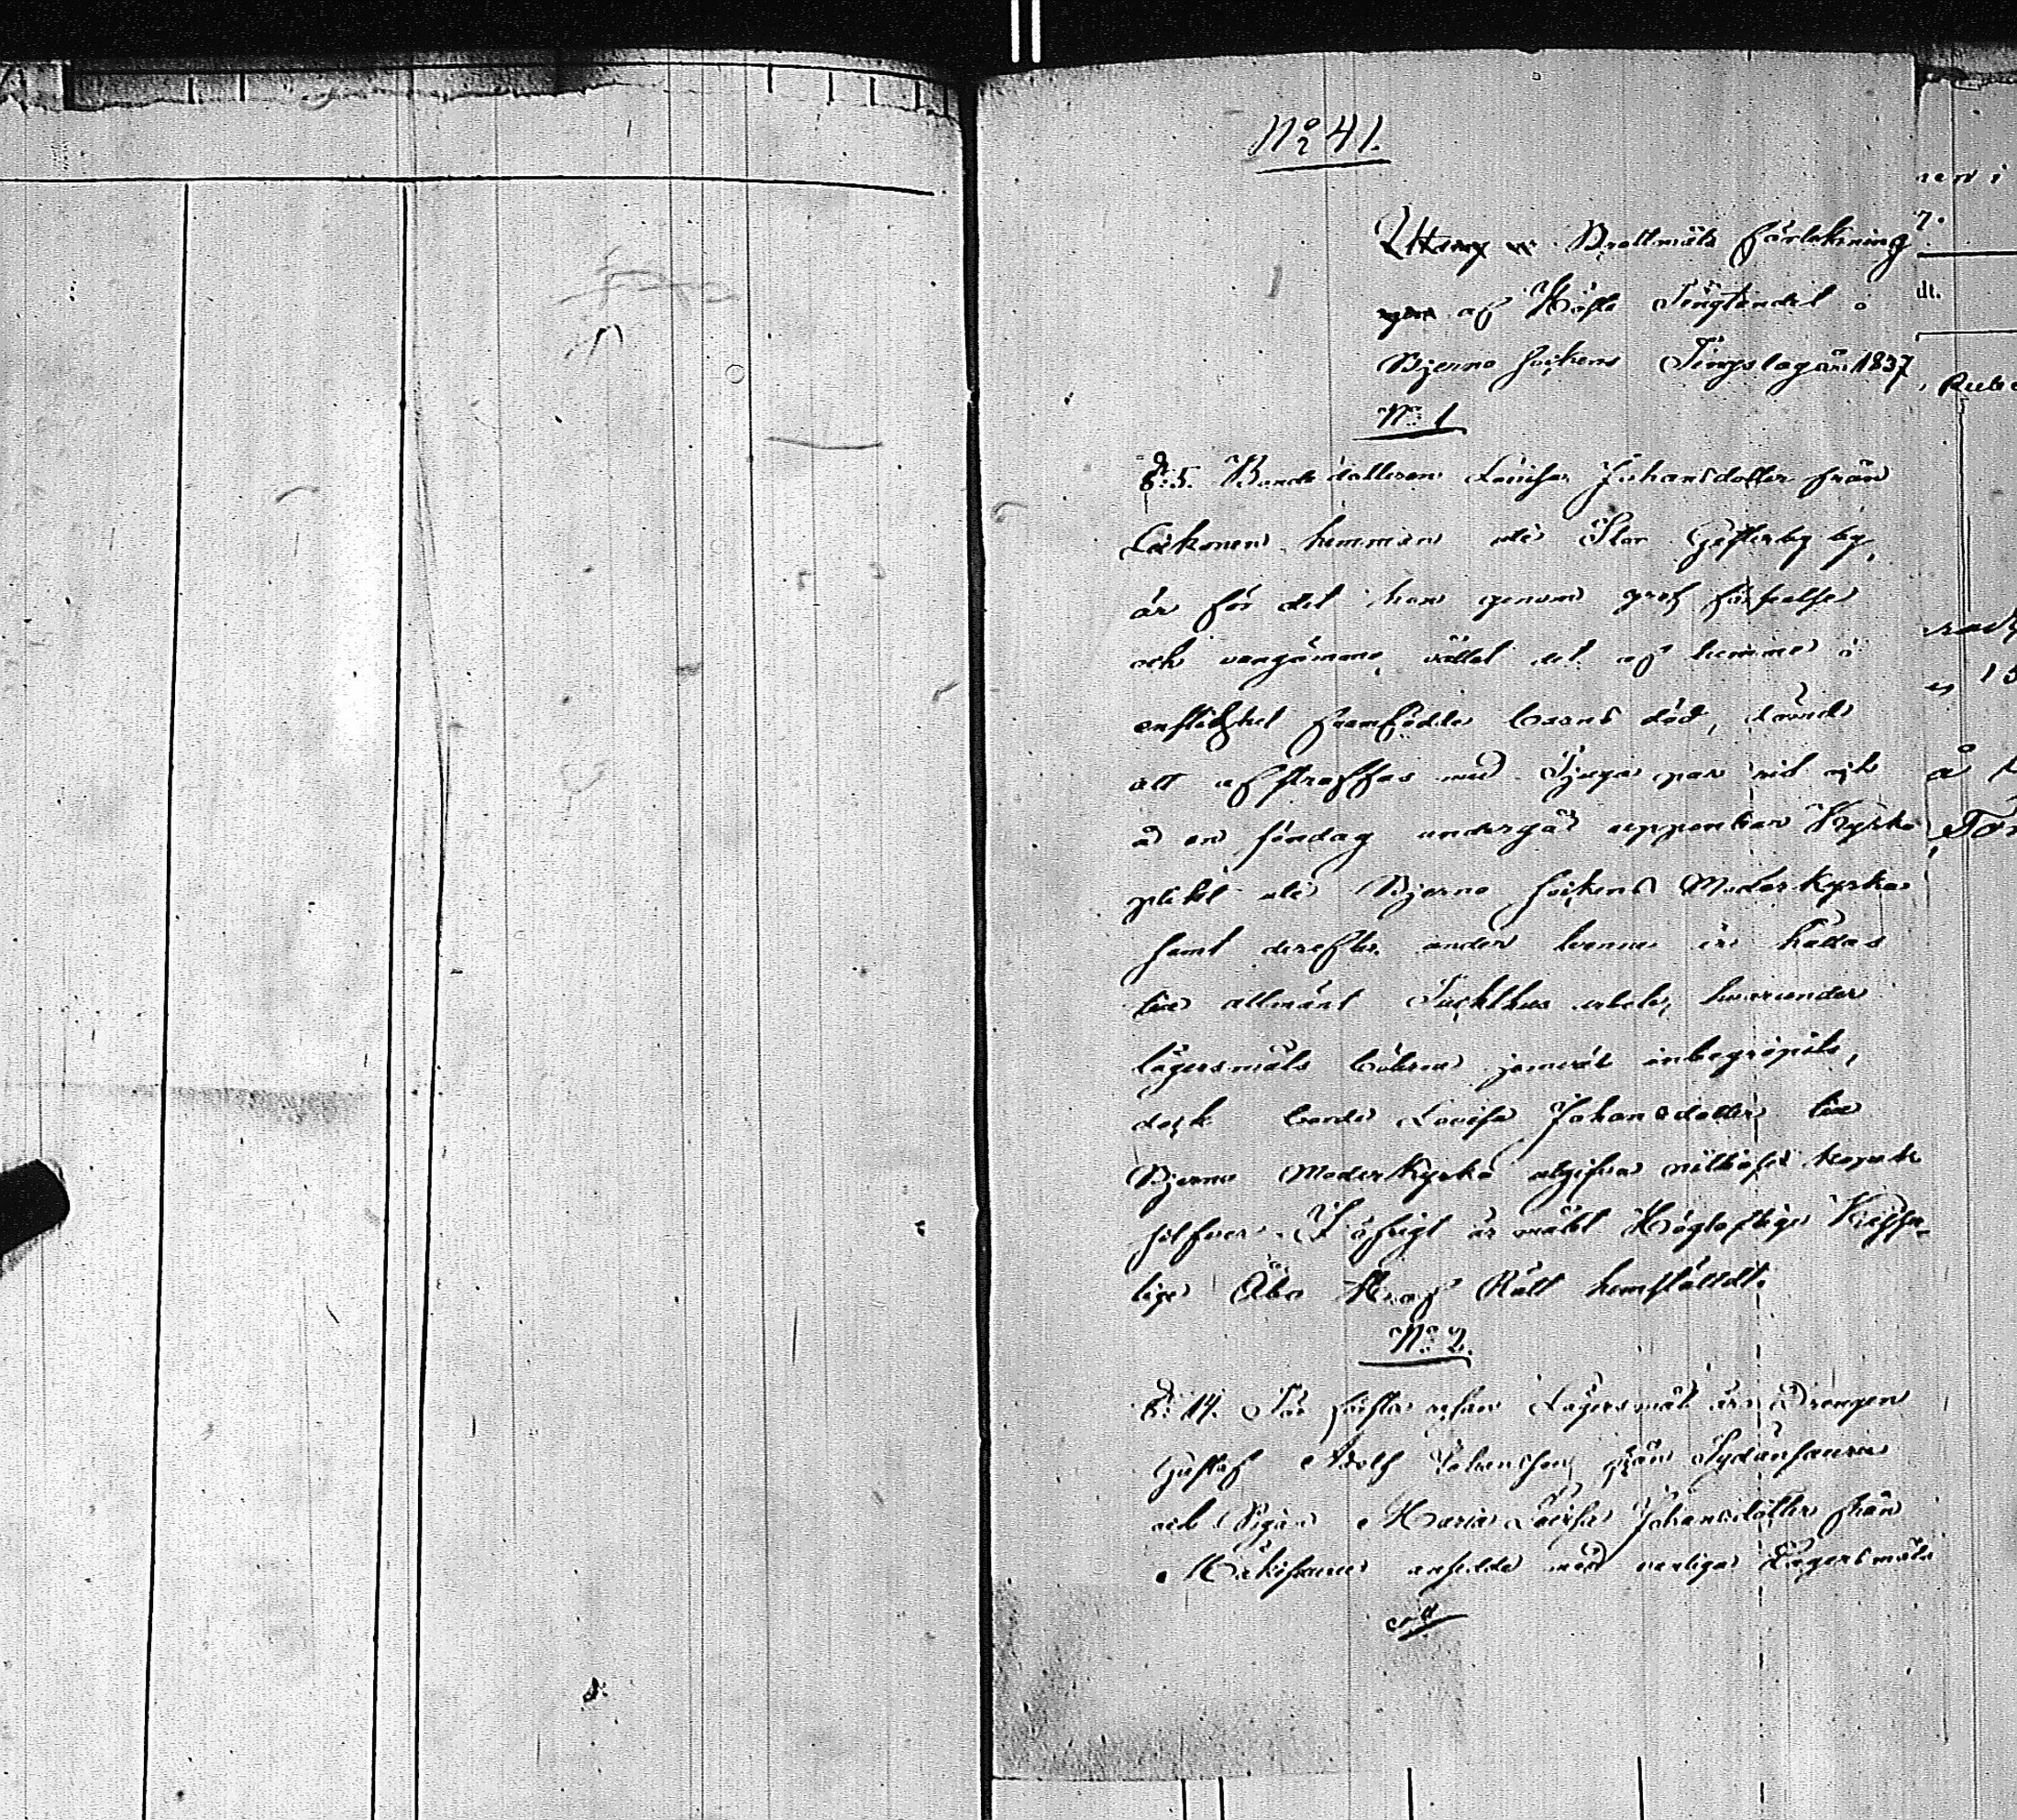 No 41.
Utdrag ur Brottmåls förtekning
af Höste Tingtandet i
Bjerno Sockens Tingslag år 1837
No 1
§. 5. Bondedottren Lovisa Johansdotter från
hemman uti Stor Gästerby by,
är för det hon genom grof förseelse
och vangömmo vållat det af henne i
enslighet framfödda barns död, dömd
att afstraffas med Tjugu par ris och
å en söndag undergå uppenbar Kyrko
plikt uti Bjerno Sockens Moderkyrka
samt derefter under tvenne år hållas
till allmänt Tuckthus arbete, hvarunder
lägersmåls böterna jemväl inbegripits,
dock borde Lovisa Johansdotter till
Bjerno Moderkyrka utgifva kopek
silfver. I öfrigt är målet Höglofliga Kejser-
liga Åbo Hof Rätt hemstäldt.
No 2.
§. 14. För första resan Lägersmål äro Drengen
Gustaf Adolf Johansson från
och Pigan Maria Lovisa Johansdotter från
ansedde med vanliga Lägersmåls